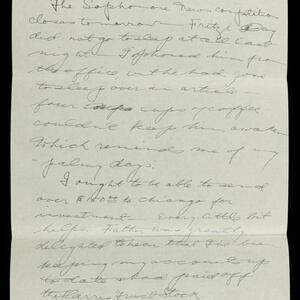 The Sophomore News competition
closes tomorrow. Fritzie Day
did not go to sleep at all last
night. I phoned him from
the office, but he had gone
to sleep over an article.
four cups cups of coffee
couldn't keep him awake.
Which reminds me of my
"palmy days."
I ought to be able to send
over $150.00 to Chicago for
investment. Every little bit
helps. Father was greatly
delighted to hear that I've been
keeping my accounts up
to date & had paid off
the Harris Trust Stock